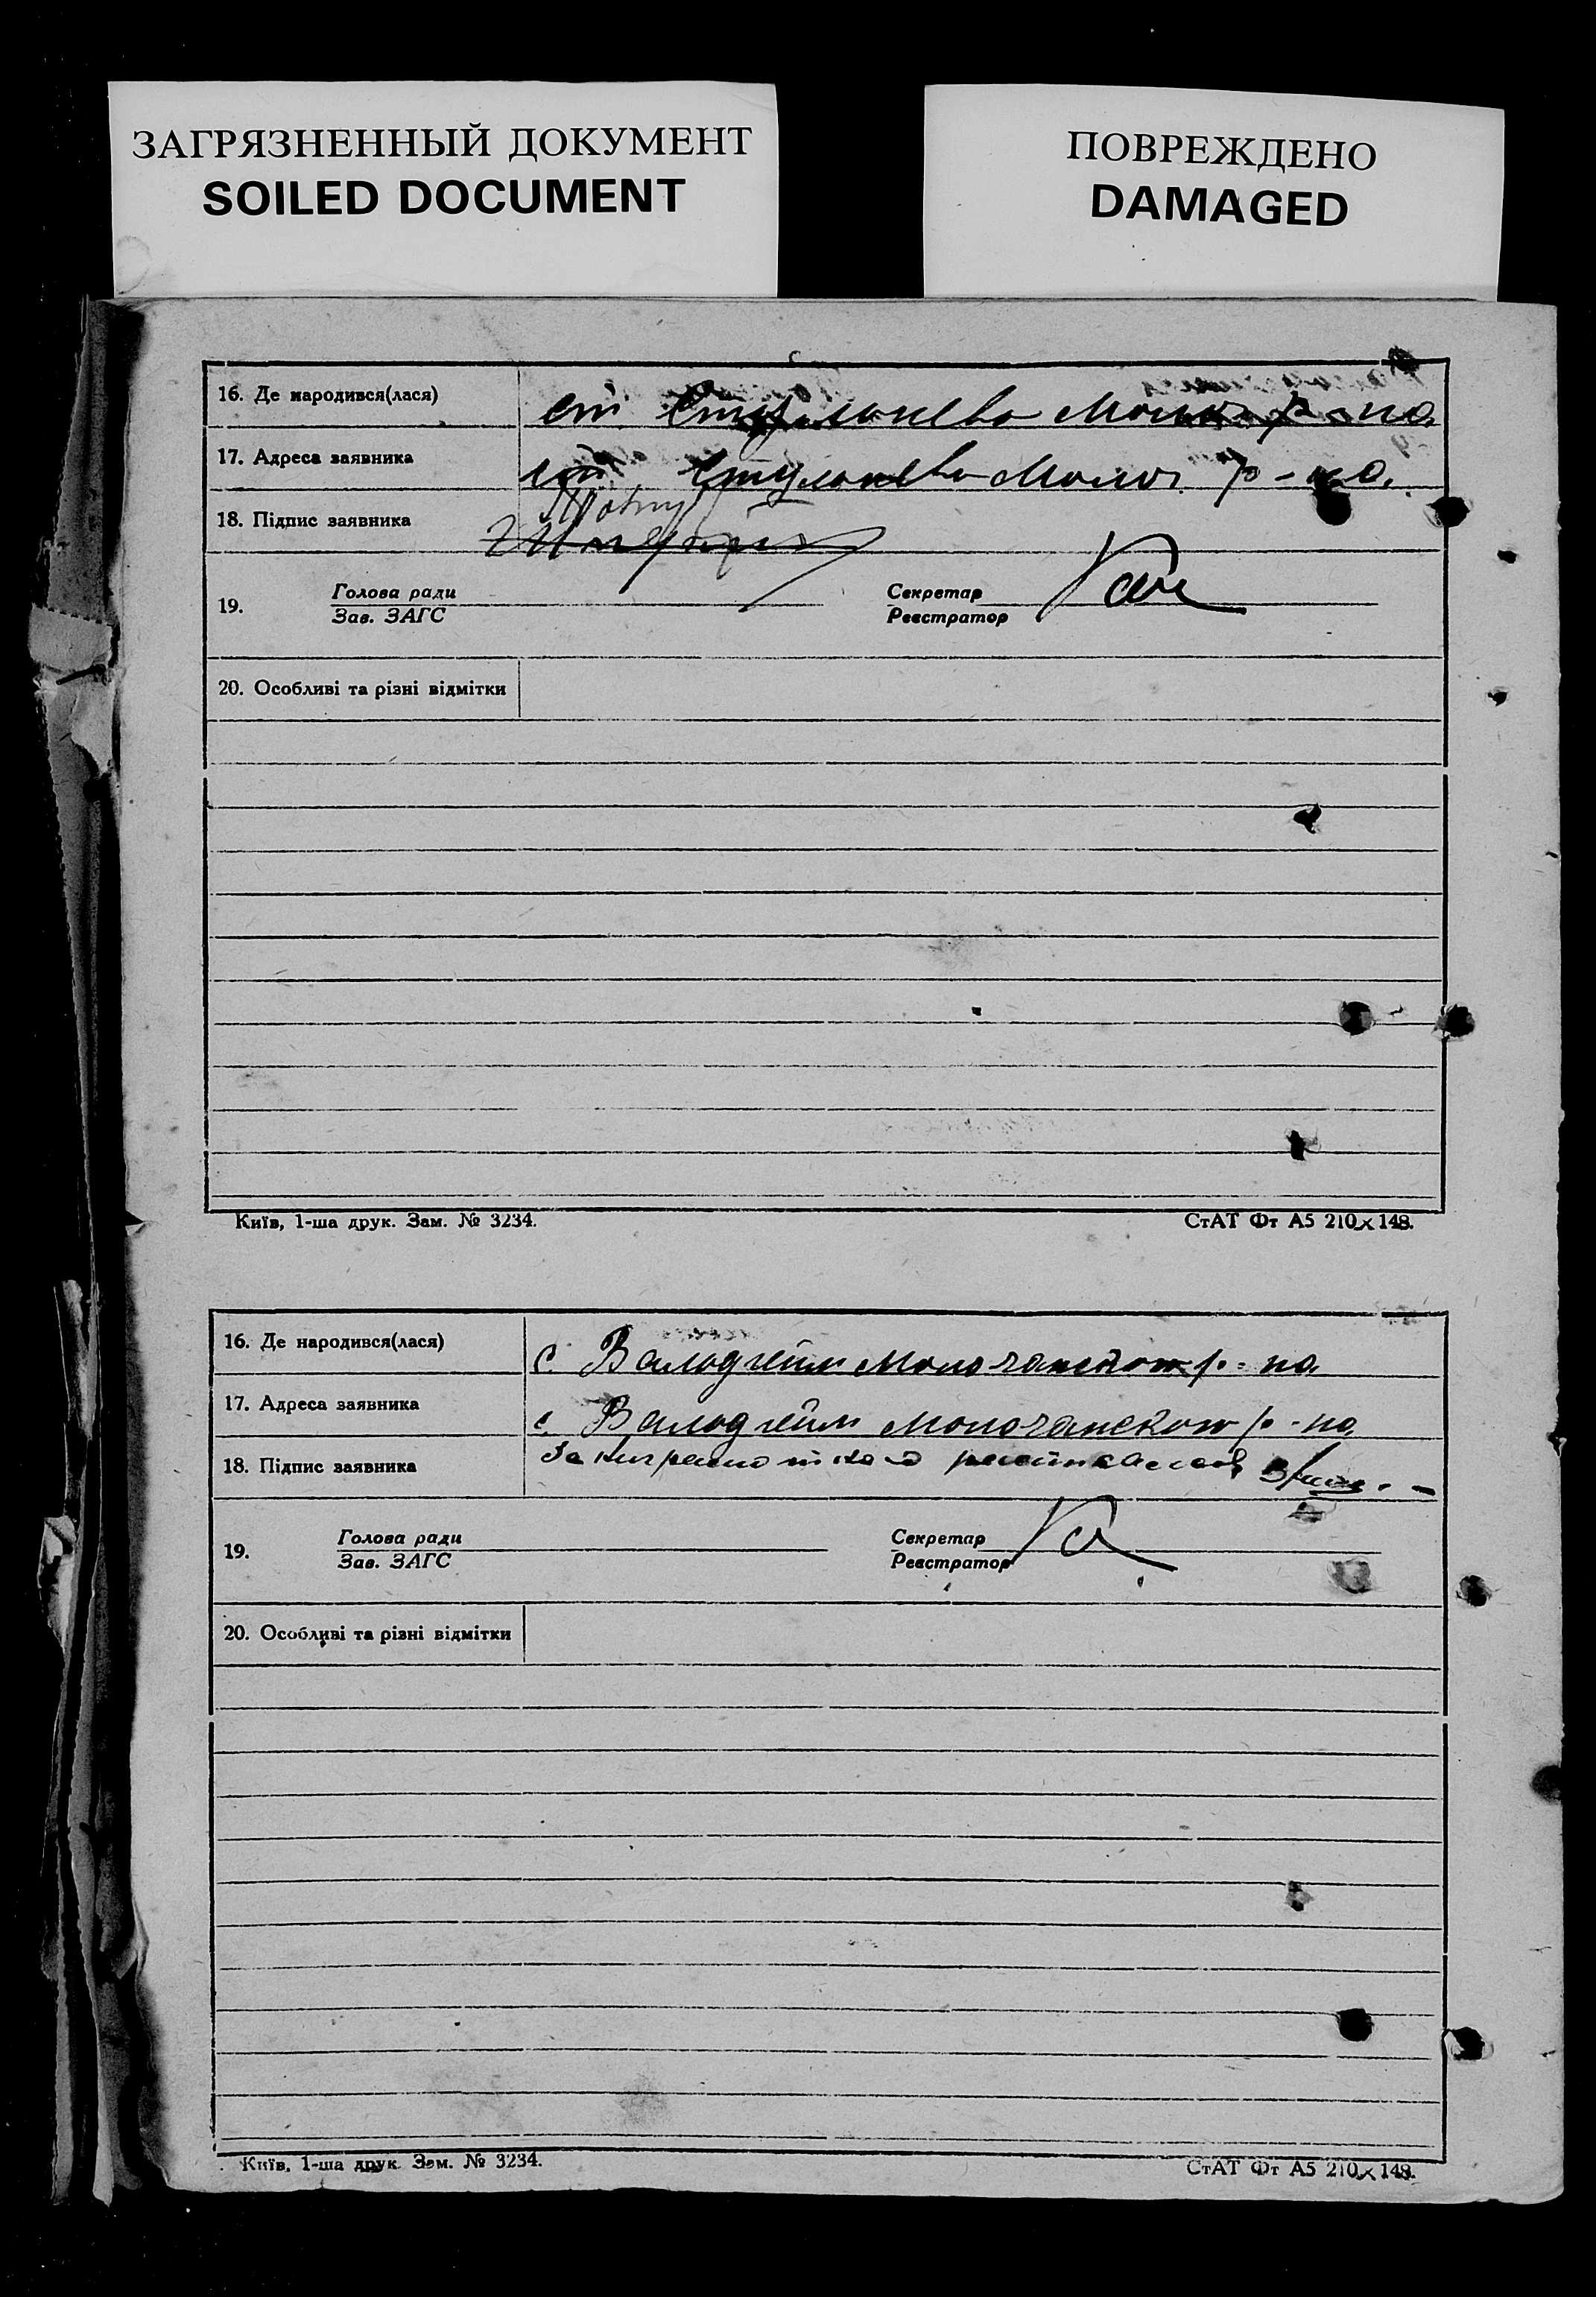 ЗАГРЯЗНЕННЫЙ ДОКУМЕНТ
SOILED DOCUMENT
ПОВРЕЖДЕНО
DAMAGED
16. Де народився(лася) ст. Стульнево Молоч р-на
17. Адреса заявника ст Стульнево Молоч. р-на.
18. Підпис заявника
19. Голова ради Секретар
Зав. ЗАГС Реєстратор
20. Особливі та різні відмітки
Київ, 1-ша друк. Зам. № 3234. СтАТ Фт А5 210×148.
16. Де народився(лася) с. Вальдгейм Молочанского р-на
17. Адреса заявника с. Вальдгейм Молочанского р-на
18. Підпис заявника За
19. Голова ради Секретар
Зав. ЗАГС Реєстратор
20. Особливі та різні відмітки
Київ, 1-ша друк. Зам. № 3234. СтАТ Фт А5 210×148.